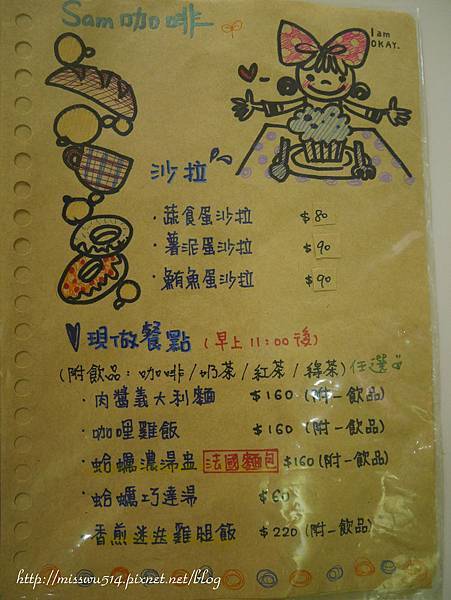 Sam咖啡
I am
OKAY.
沙拉
·蔬食蛋沙拉 $80
·薯泥蛋沙拉 $90
·鮪魚蛋沙拉 $90
現做餐點(早上11:00後)
(附飲品:咖啡/奶茶/紅茶/綠茶)任選
·肉醬義大利麵 $160(附一飲品)
·咖哩雞飯 $160(附一飲品)
·蛤蠣濃湯盅 法國麵包 $160(附一飲品)
·蛤蠣巧達湯 $60
·香煎迷迭雞腿飯 $220(附一飲品)
http://misswu514.pixnet.net/blog